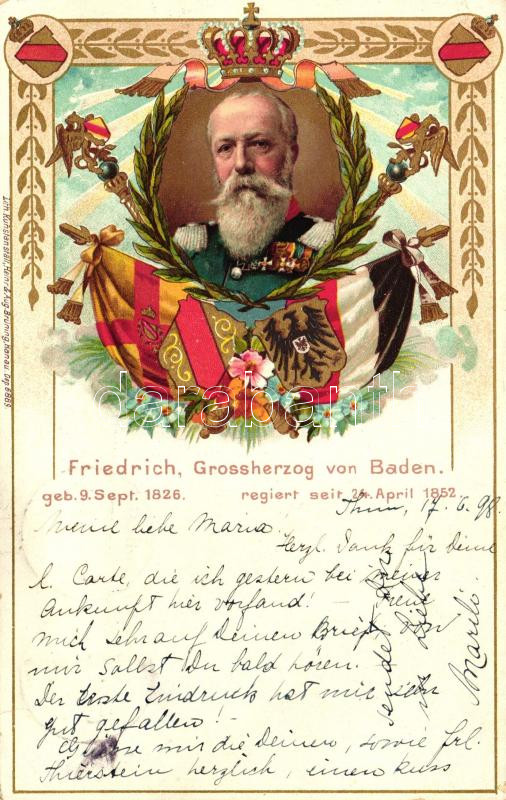 Friedrich, Grossherzog von Baden.
geb. 9. Sept. 1826. regiert seit 24. April 1852.
Thun, 17. 6. 98.
Meine liebe Maria!
Herzl. Dank für Deine
l. Carte, die ich gestern bei meiner
Ankunft hier vorfand! – Freue
mich sehr auf Deinen Brief. Von
mir sollst Du bald hören.
Der erste Eindruck hat mir sehr
gut gefallen! –
Grüsse mir die Deinen, sowie Frl.
Thierstein herzlich, einen Kuss
sendet
Marili
Lith. Kunstanstalt, Heinr. & Aug. Brüning, Hanau. Dep. 6869
darabanth